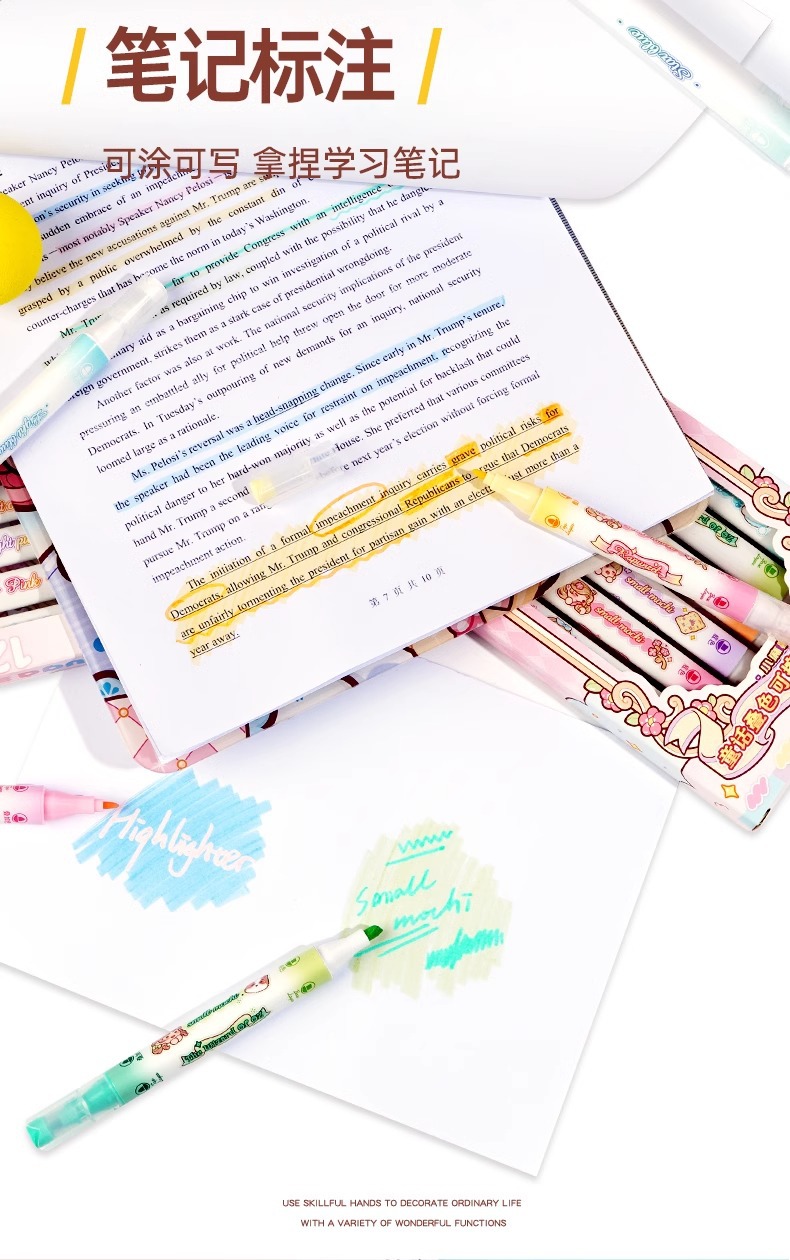 笔记标注
可涂可写 拿捏学习笔记
eaker Nancy Pelo
ent inquiry of Preside
on's security in seeking
udden embrace of an impeachme
s — most notably Speaker Nancy Pelosi
believe the new accusations against Mr. Trump are
grasped by a public overwhelmed by the constant din of
counter-charges that has become the norm in today's Washington.
Mr. far to provide Congress with an intelligence
as required by law, coupled with the possibility that he
ary aid as a bargaining chip to win investigation of a political rival by a
eign government, strikes them as a stark case of presidential wrongdoing.
Another factor was also at work. The national security implications of the president
pressuring an embattled ally for political help threw open the door for more moderate
Democrats. In Tuesday's outpouring of new demands for an inquiry, national security
loomed large as a rationale.
Ms. Pelosi's reversal was a head-snapping change. Since early in Mr. Trump's tenure,
the speaker had been the leading voice for restraint on impeachment, recognizing the
political danger to her hard-won majority as well as the potential for backlash that could
hand Mr. Trump a second House. She preferred that various committees
pursue Mr. Trump on a next year's election without forcing formal
impeachment action.
The initiation of a formal impeachment inquiry carries grave political risks for
Democrats, allowing Mr. Trump and congressional Republicans to argue that Democrats
are unfairly tormenting the president for partisan gain with an elect just more than a
year away.
第 7 页 共 10 页
Pink
small mochi
童话叠色可
Highlighter
Small
mochi
small mochi
The Wizard of Oz
USE SKILLFUL HANDS TO DECORATE ORDINARY LIFE
WITH A VARIETY OF WONDERFUL FUNCTIONS